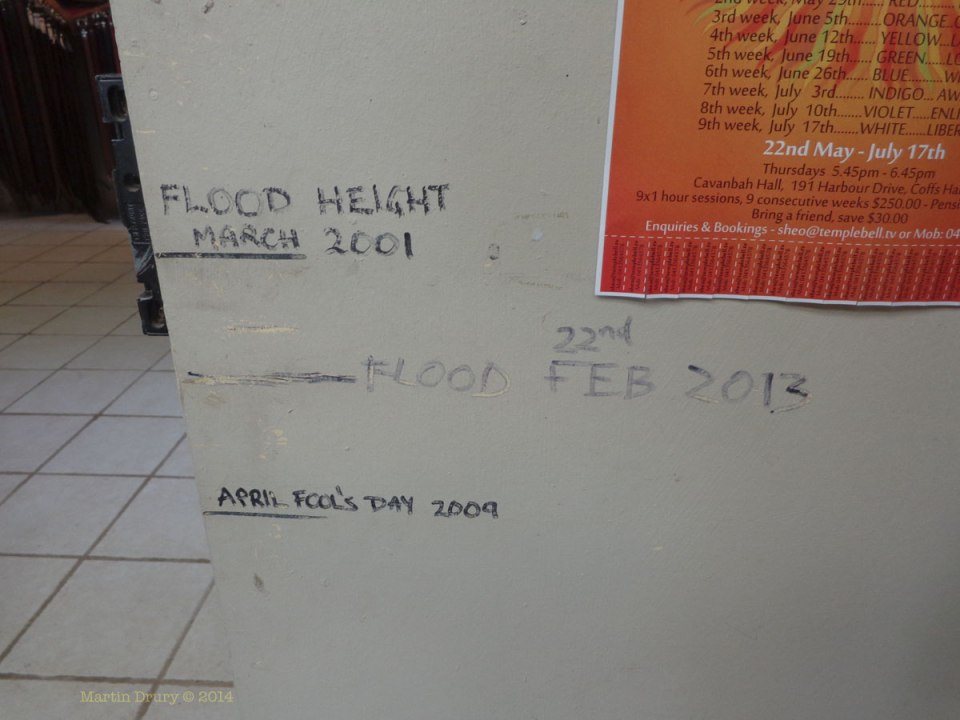 2nd week, May 29th........ RED
3rd week, June 5th..........ORANGE
4th week, June 12th....... YELLOW
5th week, June 19th....... GREEN
6th week, June 26th....... BLUE
7th week, July 3rd........ INDIGO
8th week, July 10th.......VIOLET
9th week, July 17th......WHITE
22nd May - July 17th
Thursdays 5.45pm - 6.45pm
Cavanbah Hall, 191 Harbour Drive, Coffs
9x1 hour sessions, 9 consecutive weeks $250.00 -
Bring a friend, save $30.00
Enquiries & Bookings - sheo@templebell.tv or Mob: 04
FLOOD HEIGHT
MARCH 2001
22nd
FLOOD FEB 2013
APRIL FOOL'S DAY 2009
Martin Drury © 2014